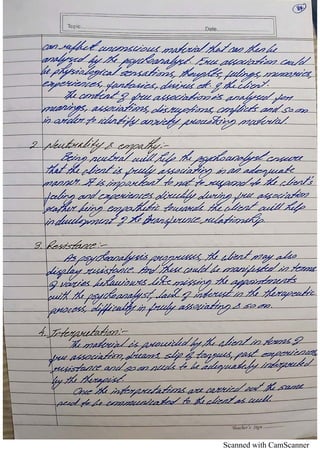 Topic
Date
can reflect unconscious material that can then be
analysed by the psychoanalyst. Free association could
be physiological sensations, thoughts, feelings, memories,
experiences, fantasies, desires etc of the client.
The content of free association is analysed for
meanings, associations, disruptions, conflicts and so on
in order to identify anxiety provoking material.
2. Neutrality & empathy:-
Being neutral will help the psychoanalyst ensure
that the client is freely associating in an adequate
manner. It is important to not to respond to the client's
feeling and experiences directly during free association
rather being empathetic towards the client will help
in development of the transference relationship.
3. Resistance:-
As psychoanalysis progresses, the client may also
display resistance. And these could be manifested in terms
of varies behaviours like missing the appointments
with the psychoanalyst, lack of interest in the therapeutic
process, difficulty in freely associating & so on.
4. Interpretation:-
The material is provided by the client in terms of
free association, dreams, slip of tongues, past experiences,
resistance and so on needs to be adequately interpreted
by the therapist.
Once the interpretations are carried out the same
need to be communicated to the client as well.
Teacher's Sign
Scanned with CamScanner